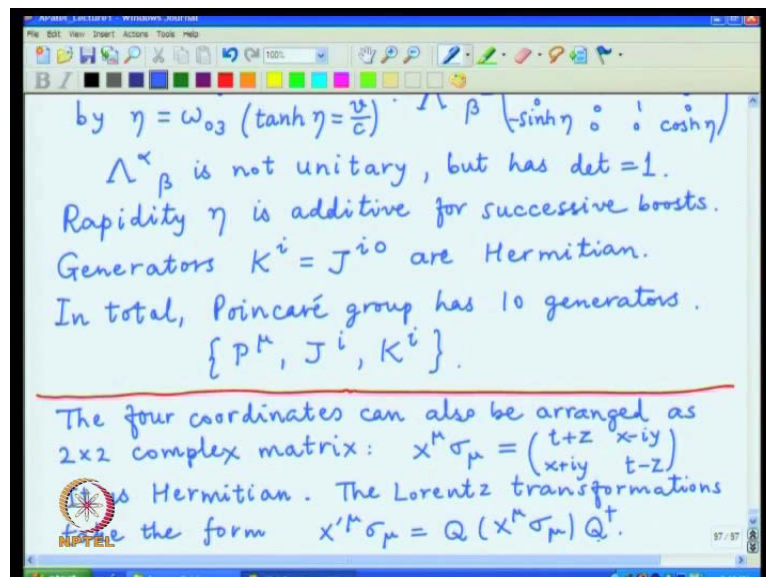 XPatel_Lecture1 - Windows Journal
File Edit View Insert Actions Tools Help
100%
B I
by η = ω₀₃ (tanh η = v/c). Λ^α_β (-sinh η 0 0 cosh η)
Λ^α_β is not unitary, but has det = 1.
Rapidity η is additive for successive boosts.
Generators K^i = J^{i0} are Hermitian.
In total, Poincaré group has 10 generators.
{ P^μ, J^i, K^i }.
The four coordinates can also be arranged as
2x2 complex matrix: x^μ σ_μ = (t+z x-iy
x+iy t-z)
is Hermitian. The Lorentz transformations
the form x'^μ σ_μ = Q (x^μ σ_μ) Q^†.
NPTEL
97/97